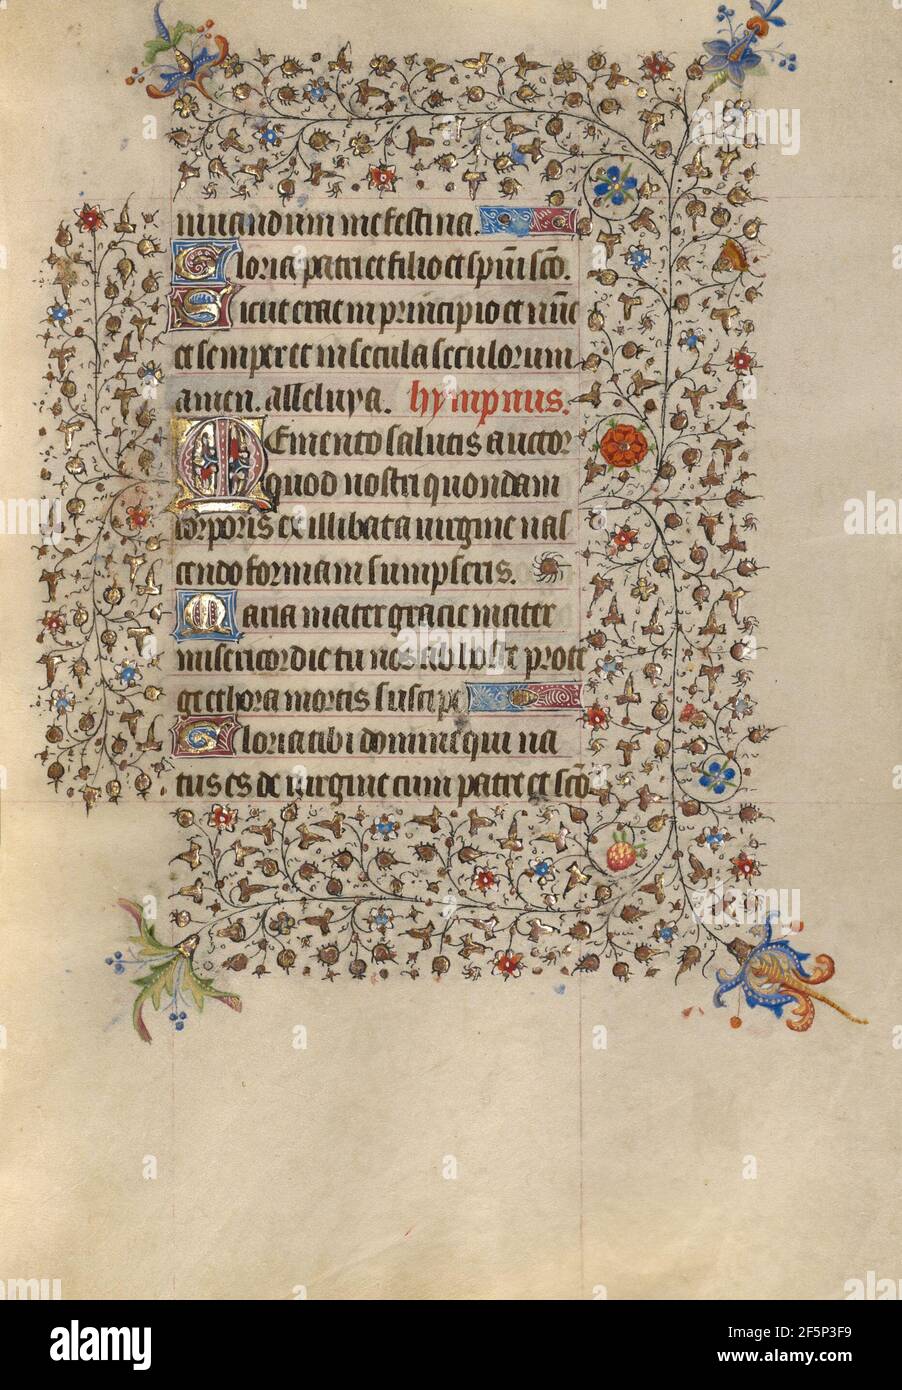 iuuandum me festina.
Gloria patri et filio et spũi sc̃o.
Sicut erat in principio et nũc
et semper et in secula seculorum
amen. alleluya. hympnus.
Memento salutis auctor
quod nostri quondam
corporis ex illibata uirgine nas
cendo formam sumpseris.
Maria mater gracie mater
misericordie tu nos ab hoste prote
ge et hora mortis suscipe
Gloria tibi domine qui na
tus es de uirgine cum patre et sc̃o
alamy
Image ID: 2F5P3F9
www.alamy.com